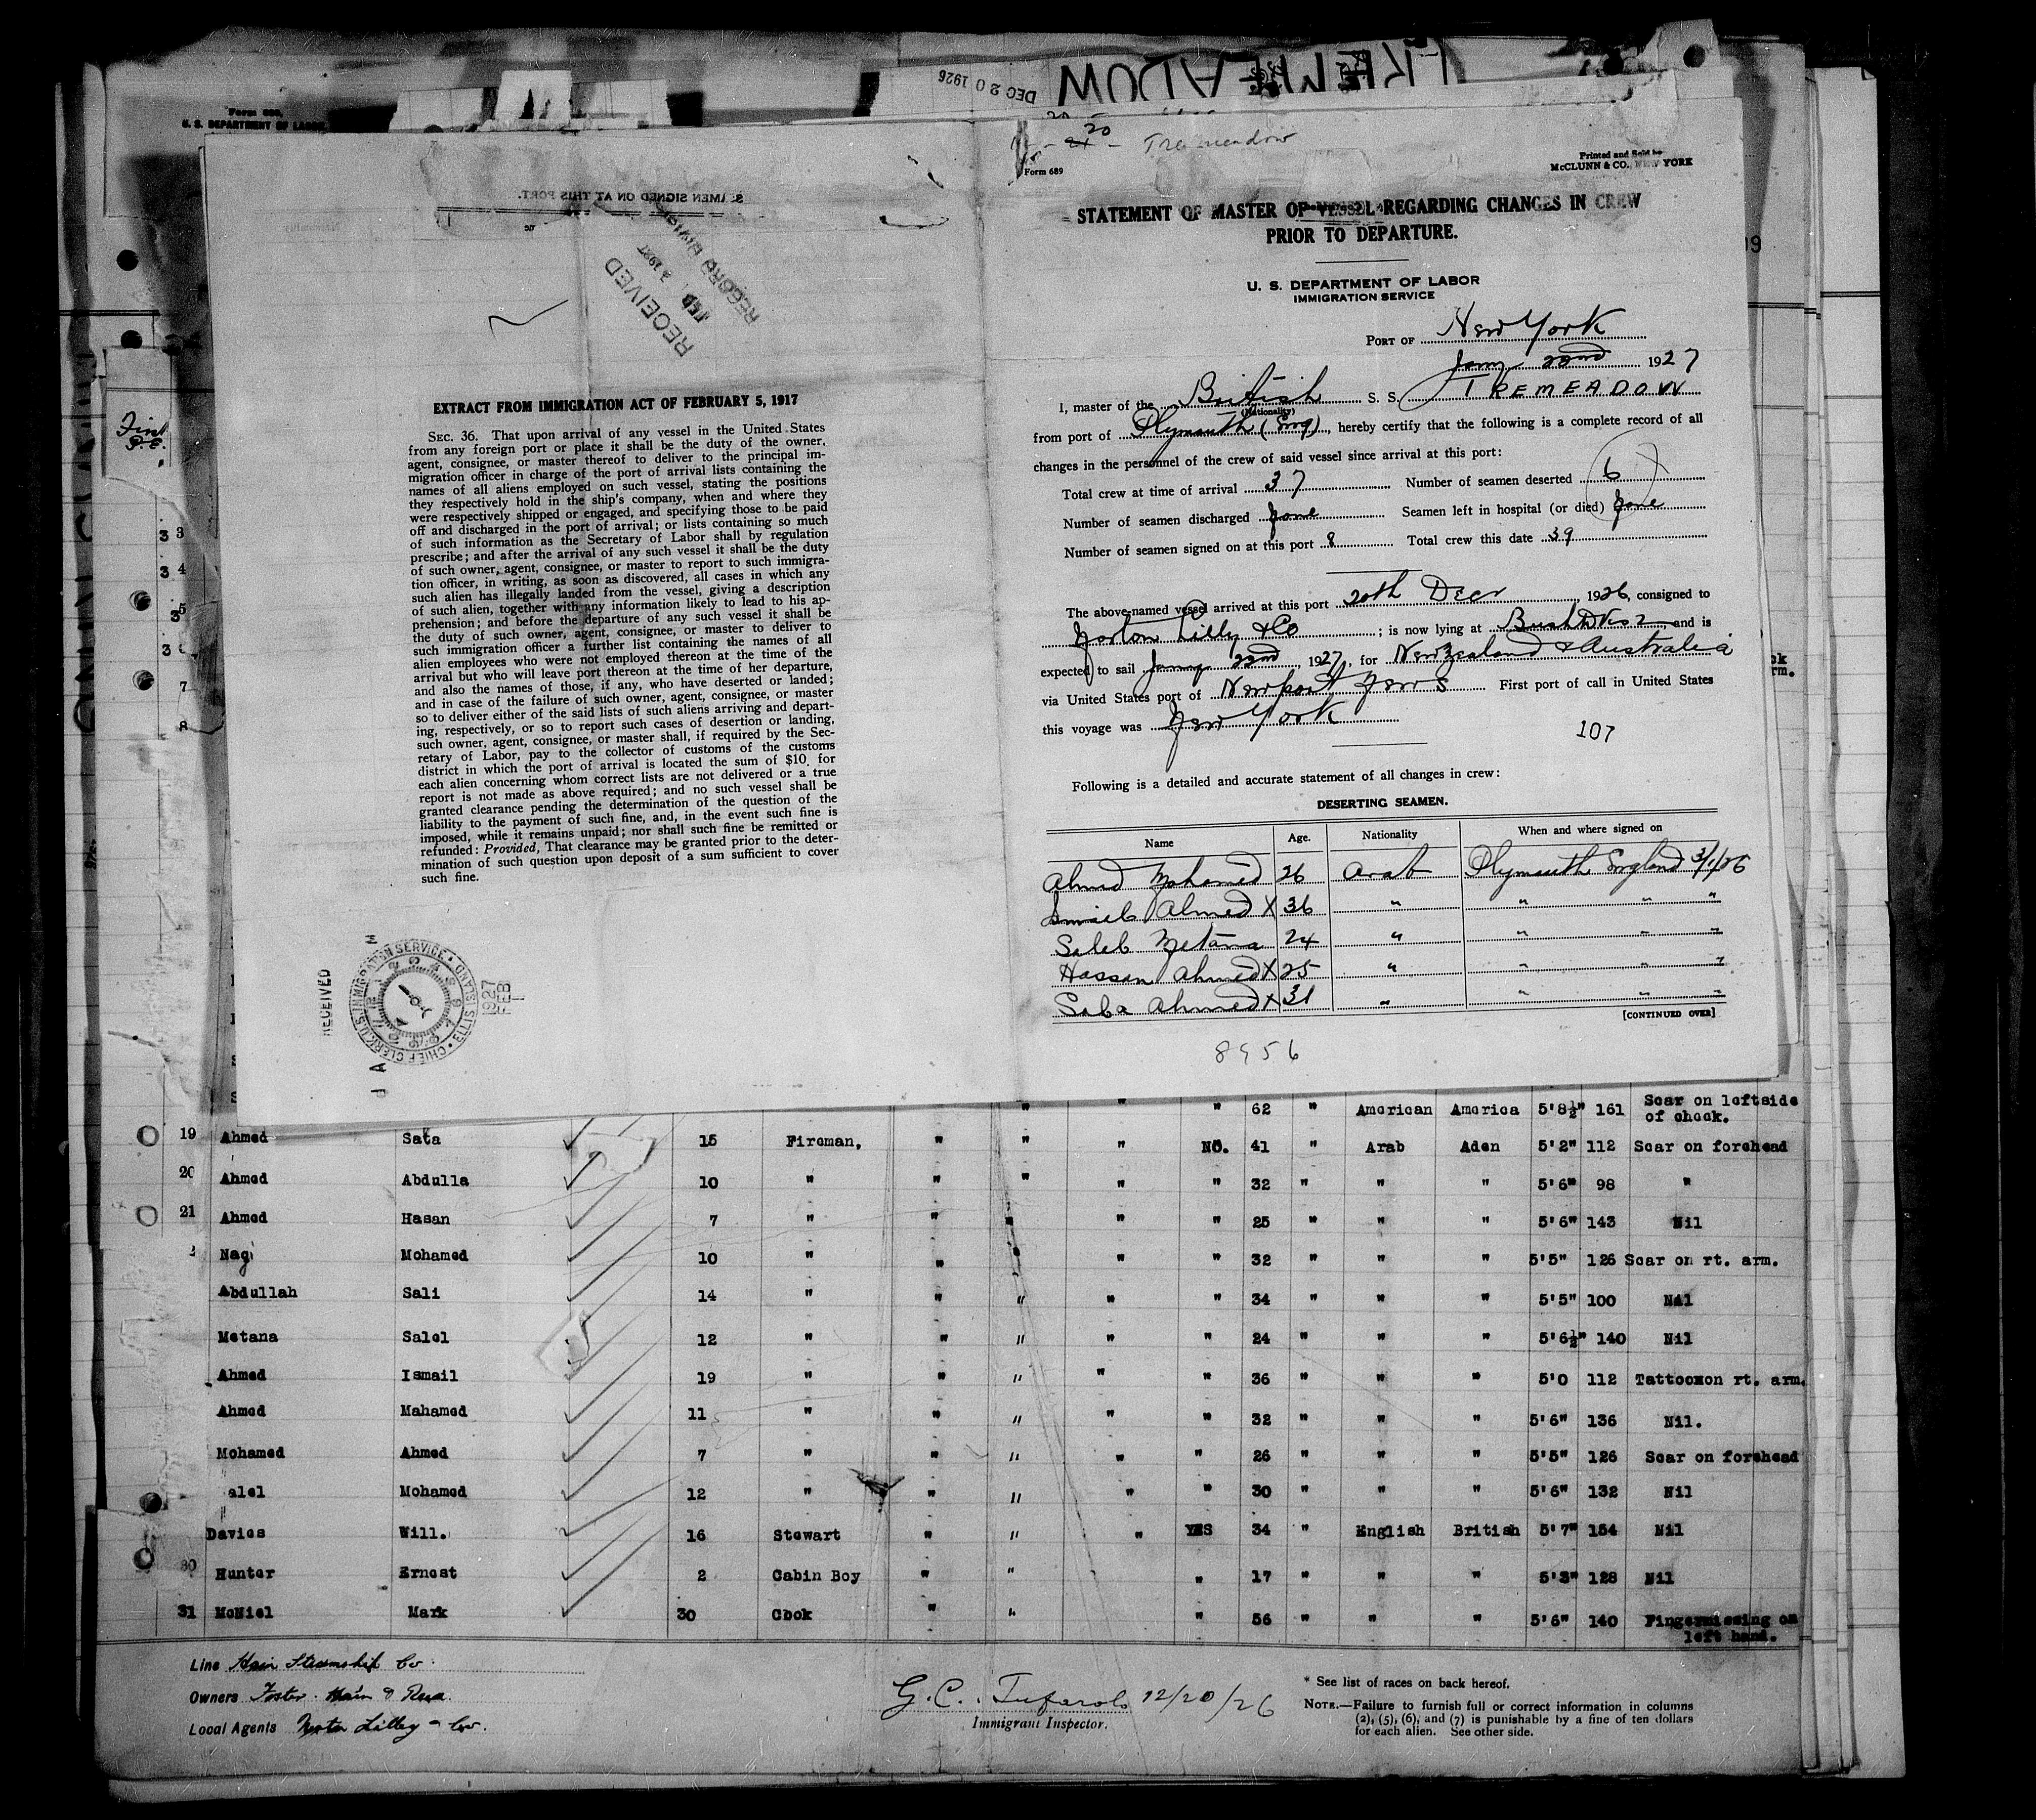 Form 680,
U. S. DEPARTMENT OF LABOR
DEC 20 1926
TREMEADOW
20
Tremeadow
Form 689
Printed and Sold by
McCLUNN & CO., NEW YORK
STATEMENT OF MASTER OF VESSEL REGARDING CHANGES IN CREW
PRIOR TO DEPARTURE.
U. S. DEPARTMENT OF LABOR
IMMIGRATION SERVICE
PORT OF New York
Jany 22nd 1927
I, master of the British S. S. TREMEADOW
(Nationality)
from port of Plymouth (Eng), hereby certify that the following is a complete record of all
changes in the personnel of the crew of said vessel since arrival at this port:
Total crew at time of arrival 37 Number of seamen deserted 6
Number of seamen discharged None Seamen left in hospital (or died) None
Number of seamen signed on at this port 8 Total crew this date 39
The above-named vessel arrived at this port 20th Decr 1926, consigned to
Norton Lilly & Co; is now lying at Bush Dks 2 and is
expected to sail Jany 22nd, 1927, for New Zealand & Australia
via United States port of Newport News First port of call in United States
this voyage was New York
107
Following is a detailed and accurate statement of all changes in crew:
DESERTING SEAMEN.
Name Age. Nationality When and where signed on
Ahmed Mohamed 26 Arab Plymouth England 3/1/26
Ahmed X 36 " " " "
Saleb Metana 24 " " " "
Hassan Ahmed X 25 " " " "
Saba Ahmed X 31 " " " "
[CONTINUED OVER]
8956
SEAMEN SIGNED ON AT THIS PORT.
RECEIVED
RECORD DIVISION
EXTRACT FROM IMMIGRATION ACT OF FEBRUARY 5, 1917
SEC. 36. That upon arrival of any vessel in the United States
from any foreign port or place it shall be the duty of the owner,
agent, consignee, or master thereof to deliver to the principal im-
migration officer in charge of the port of arrival lists containing the
names of all aliens employed on such vessel, stating the positions
they respectively hold in the ship's company, when and where they
were respectively shipped or engaged, and specifying those to be paid
off and discharged in the port of arrival; or lists containing so much
of such information as the Secretary of Labor shall by regulation
prescribe; and after the arrival of any such vessel it shall be the duty
of such owner, agent, consignee, or master to report to such immigra-
tion officer, in writing, as soon as discovered, all cases in which any
such alien has illegally landed from the vessel, giving a description
of such alien, together with any information likely to lead to his ap-
prehension; and before the departure of any such vessel it shall be
the duty of such owner, agent, consignee, or master to deliver to
such immigration officer a further list containing the names of all
alien employees who were not employed thereon at the time of the
arrival but who will leave port thereon at the time of her departure,
and also the names of those, if any, who have deserted or landed;
and in case of the failure of such owner, agent, consignee, or master
so to deliver either of the said lists of such aliens arriving and depart-
ing, respectively, or so to report such cases of desertion or landing,
such owner, agent, consignee, or master shall, if required by the Sec-
retary of Labor, pay to the collector of customs of the customs
district in which the port of arrival is located the sum of $10. for
each alien concerning whom correct lists are not delivered or a true
report is not made as above required; and no such vessel shall be
granted clearance pending the determination of the question of the
liability to the payment of such fine, and, in the event such fine is
imposed, while it remains unpaid; nor shall such fine be remitted or
refunded: Provided, That clearance may be granted prior to the deter-
mination of such question upon deposit of a sum sufficient to cover
such fine.
RECEIVED
CHIEF CLERK U.S. IMMIGRATION SERVICE • ELLIS ISLAND •
1927
FEB
1
" " " 62 " American America 5'8½" 161 Scar on leftside
of cheek.
19 Ahmed Sata 15 Fireman, " " " NO. 41 " Arab Aden 5'2" 112 Scar on forehead
20 Ahmed Abdulla 10 " " " " " 32 " " " 5'6" 98 "
21 Ahmed Hasan 7 " " " " " 25 " " " 5'6" 143 Nil
Nagi Mohamed 10 " " " " 32 " " " 5'5" 126 Scar on rt. arm.
Abdullah Sali 14 " " " " " 34 " " " 5'5" 100 Nil
Metana Salel 12 " " " " " 24 " " " 5'6½" 140 Nil
Ahmed Ismail 19 " " " " " 36 " " " 5'0 112 Tattooxon rt. arm.
Ahmed Mahamed 11 " " " " " 32 " " " 5'6" 136 Nil.
Mohamed Ahmed 7 " " " " " 26 " " " 5'5" 126 Scar on forehead
alel Mohamed 12 " " " " " 30 " " " 5'6" 132 Nil
Davies Will. 16 Stewart " " " YES 34 " English British 5'7" 154 Nil
30 Hunter Ernest 2 Cabin Boy " " " 17 " " " 5'3" 128 Nil
31 McNiel Mark 30 Cook " " " 56 " " " 5'6" 140 Fingermissing on
left hand.
Line Hain Steamship Co.
Owners Foster Hain & Read
Local Agents Norton Lilley & Co.
12/20/26
Immigrant Inspector.
* See list of races on back hereof.
NOTE.—Failure to furnish full or correct information in columns
(2), (5), (6), and (7) is punishable by a fine of ten dollars
for each alien. See other side.